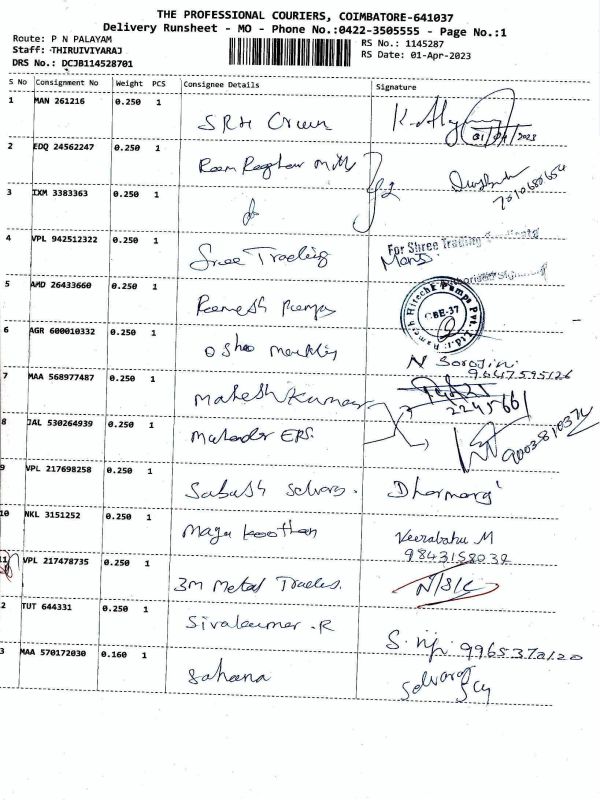 THE PROFESSIONAL COURIERS, COIMBATORE-641037
Delivery Runsheet - MO - Phone No.:0422-3505555 - Page No.:1
Route: P N PALAYAM
Staff: THIRUIVIYARAJ
DRS No.: DCJB114528701
RS No.: 1145287
RS Date: 01-Apr-2023
S No Consignment No Weight PCS Consignee Details Signature
1 MAN 261216 0.250 1 SRH Crown
2 EDQ 24562247 0.250 1 Ram Raghav Mill
3 IXM 3383363 0.250 1
4 VPL 942512322 0.250 1 Sree Trading
For Shree Trading
5 AMD 26433660 0.250 1 Ramesh Pumps
Ramesh Hitech Pumps Pvt. Ltd. CBE-37
6 AGR 600010332 0.250 1 N Sarojini
9047595126
7 MAA 568977487 0.250 1 Maheshkumar
2245661
8 JAL 530264939 0.250 1 Mahender
9003810374
9 VPL 217698258 0.250 1 Subash Selvaraj. Dharmaraj
10 NKL 3151252 0.250 1 Veerabahu M
9843158032
11 VPL 217478735 0.250 1 3M Metal Trades. N/S/C
2 TUT 644331 0.250 1 Sivakumar .R
3 MAA 570172030 0.160 1 Sahana